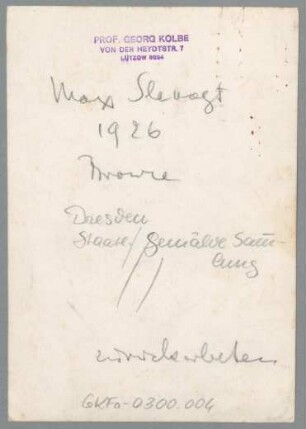 PROF. GEORG KOLBE
VON DER HEYDTSTR. 7
LÜTZOW 8554
Max Slevogt
1926
Bronze
Dresden
Staatl/Gemälde Samm-
lung
zurückerbeten
GKFo-0300.004